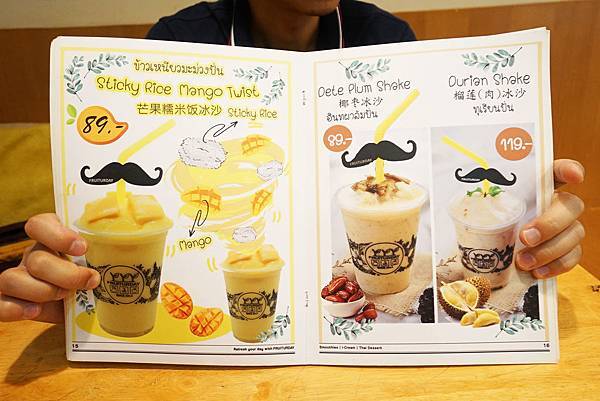 ข้าวเหนียวมะม่วงปั่น
Sticky Rice Mango Twist
芒果糯米饭冰沙 Sticky Rice
89.-
FRUITURDAY
Mango
15
Refresh your day with FRUITURDAY
Dete Plum Shake
椰枣冰沙
อินทผาลัมปั่น
89.-
FRUITURDAY
Durian Shake
榴莲(肉)冰沙
ทุเรียนปั่น
119.-
Smoothies | I-Cream | Thai Dessert
16